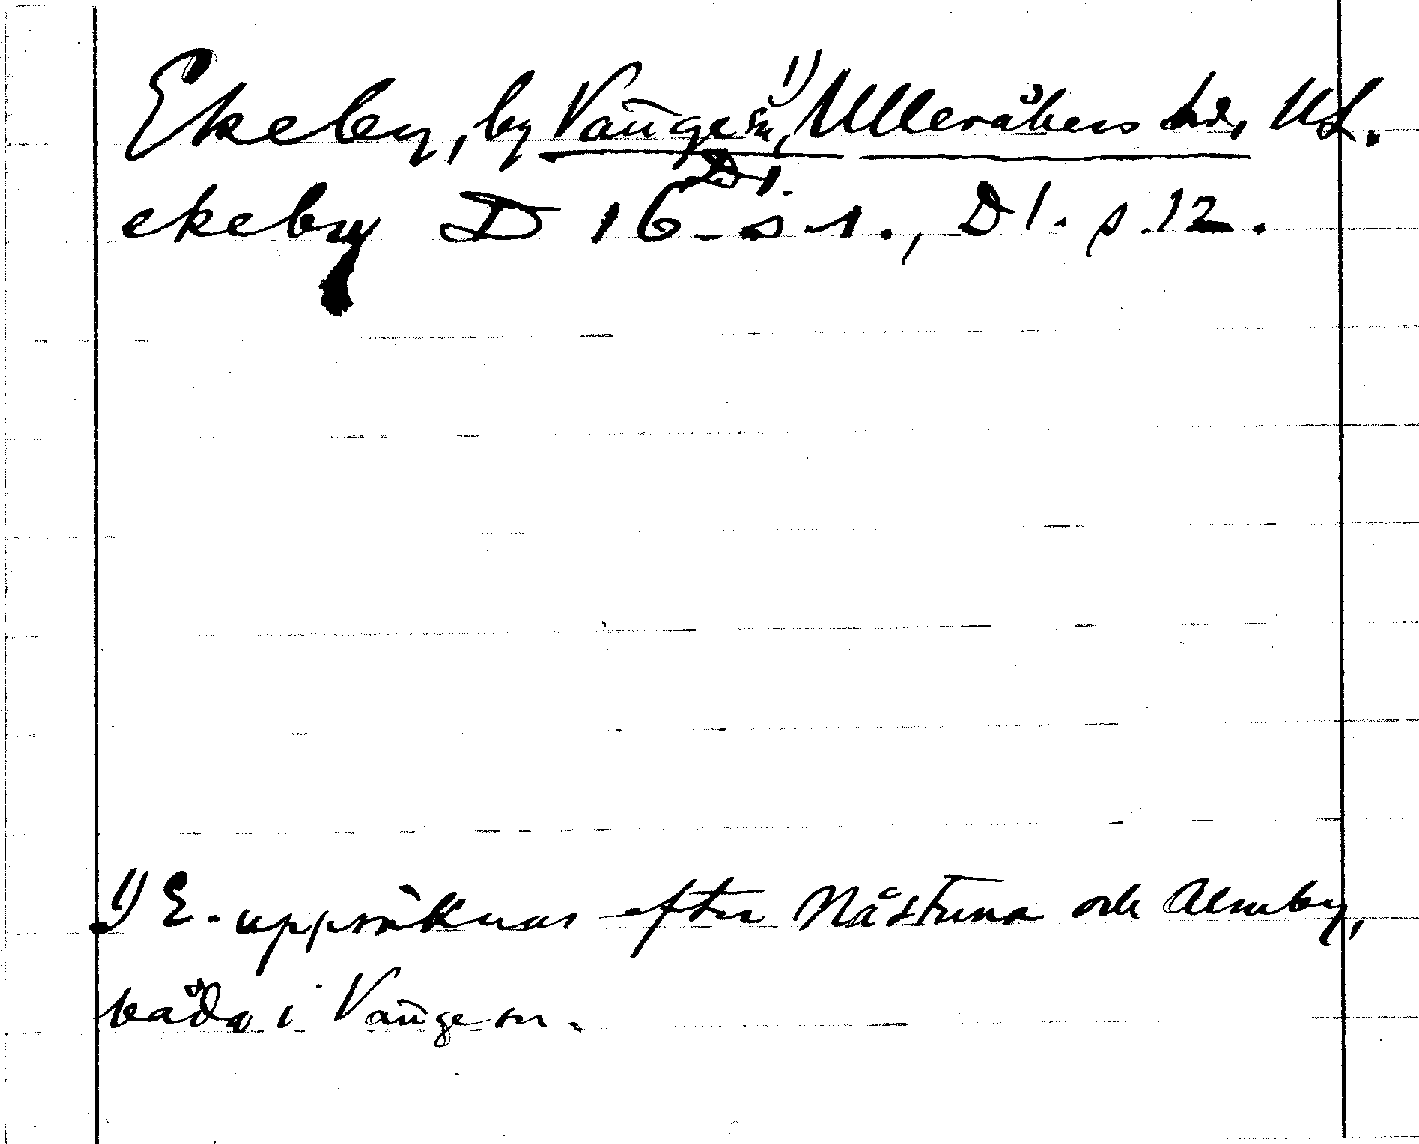 Ekeby, by Vaüge sn ¹⁾, Ulleråkers hd, Upl.
ekeby D 16 D1. s 1., D1. s. 12.
1) E. uppräknas efter Nåstuna och Almby,
båda i Vaüge sn.